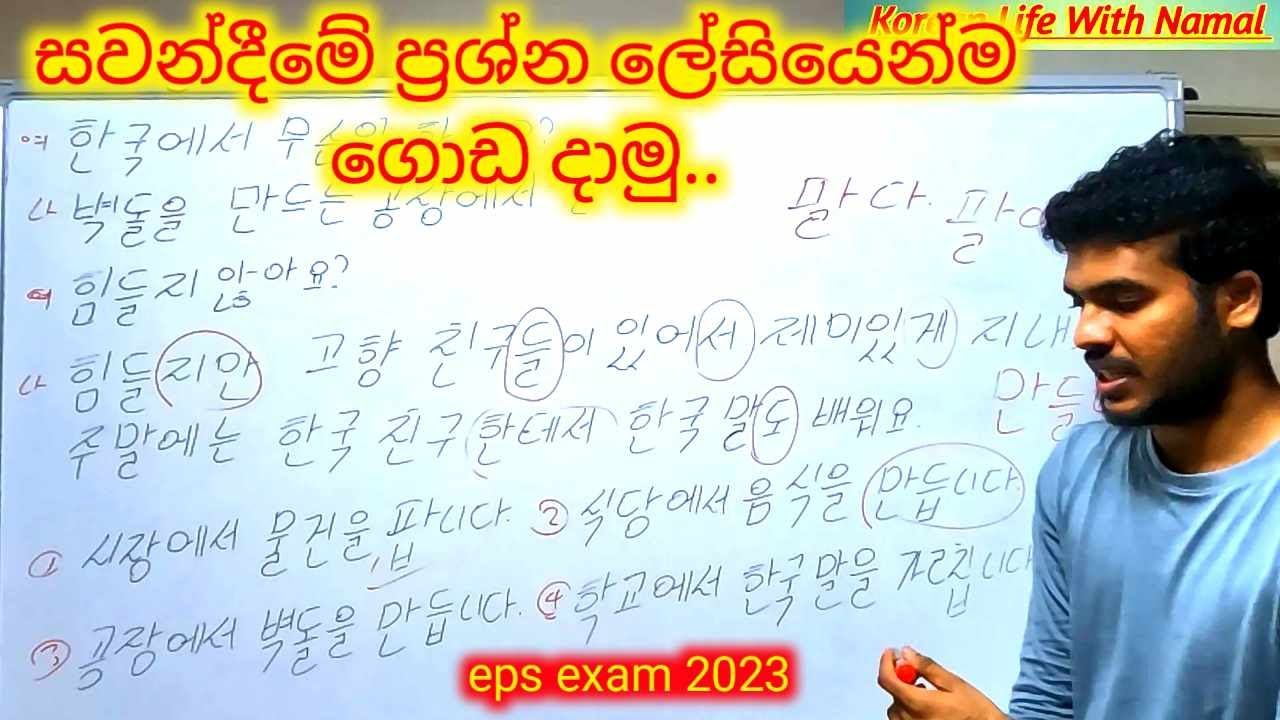 Korean Life With Namal
සවන්දීමේ ප්‍රශ්න ලේසියෙන්ම
ගොඩ දාමු..
여 한국에서
나 벽돌을 만드는 공장에서
말다. 팔
여 힘들지 않아요?
나 힘들지만 고향 친구들이 있어서 제미있게 지내
주말에는 한국 친구한테서 한국말도 배워요.
만들
① 시장에서 물건을 팝니다. ② 식당에서 음식을 만듭니다.
③ 공장에서 벽돌을 만듭니다. ④ 학교에서 한국말을
eps exam 2023